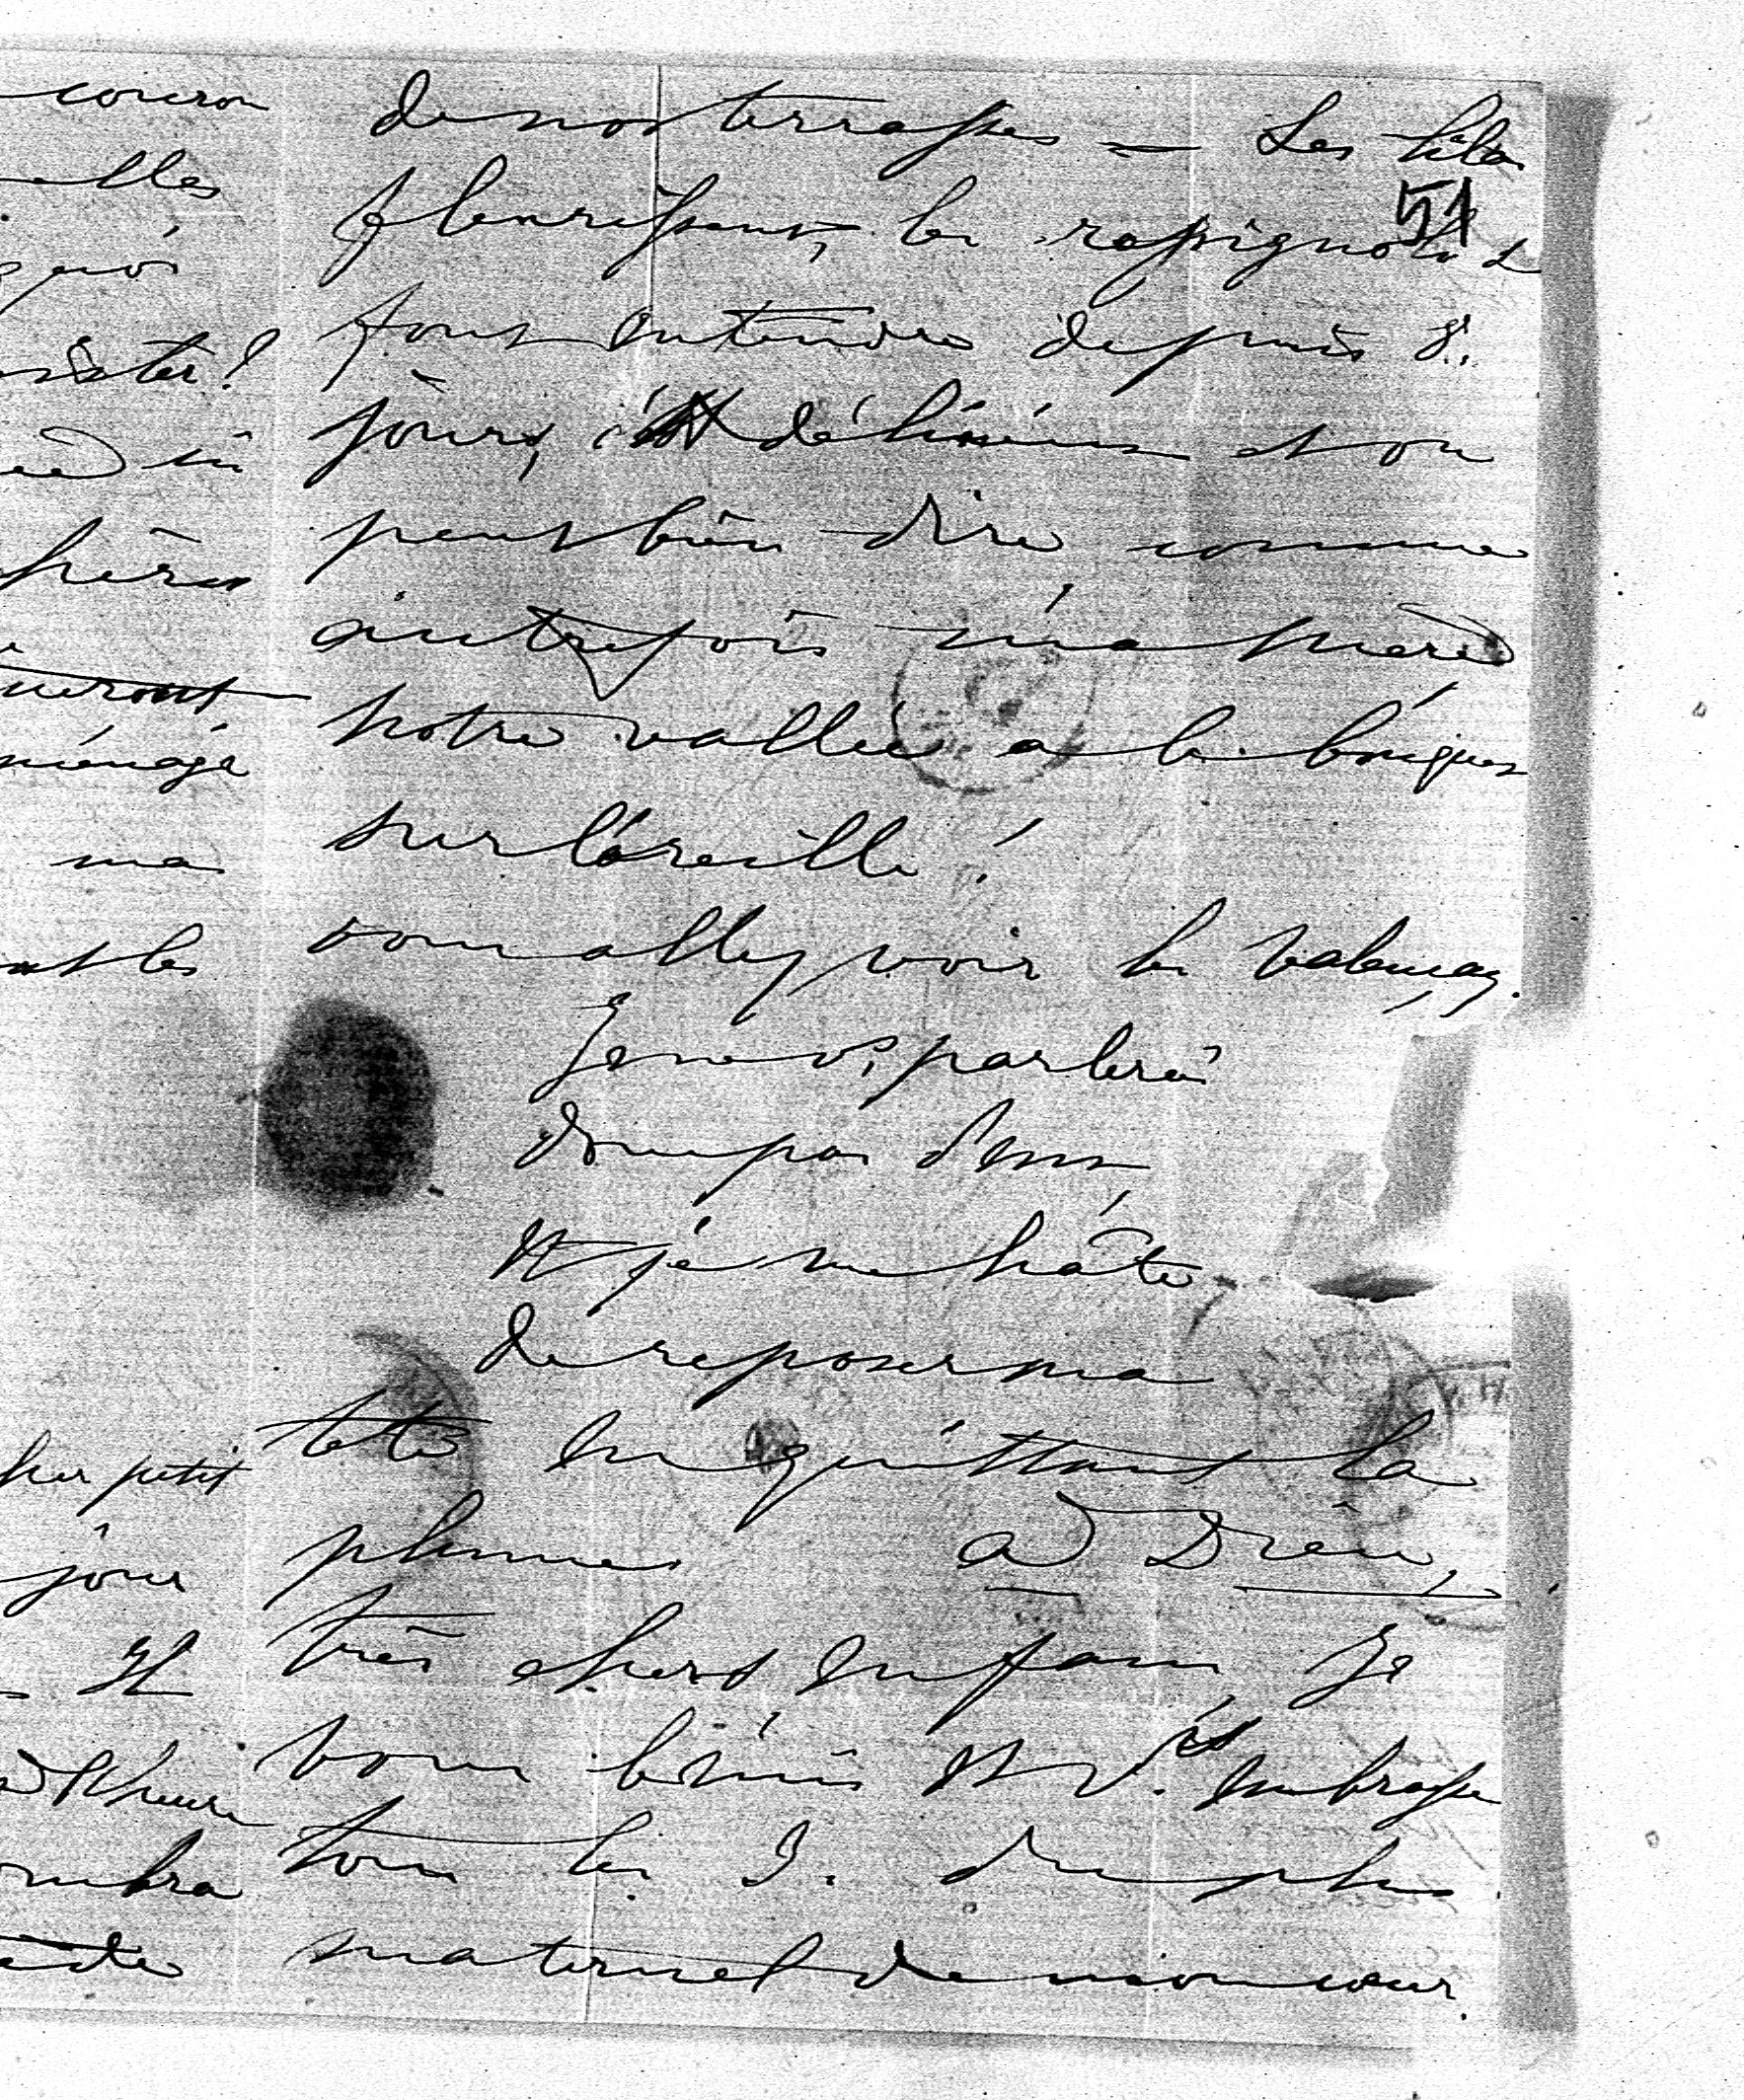 couron
elles
quoi
sister!
in
ueront
ménage
ma
les
petit
jour
Il
de nos terrasses — Les lilas
51
fleurissent, les rossignols se
font entendre depuis 8.
jours, c'est délicieux et on
peut bien dire comme
autrefois ma mère
notre vallée a le bouquet
sur l'oreille!
vous allez voir les Valençay.
Je ne vs. parlerai
donc pas d'eux
et je me hâte
de reposer ma
tête en quittant la
plume a Dieu,
très chers enfans, Je
vous bénis et v. embrasse
tous les 3. du plus
maternel de mon cœur.